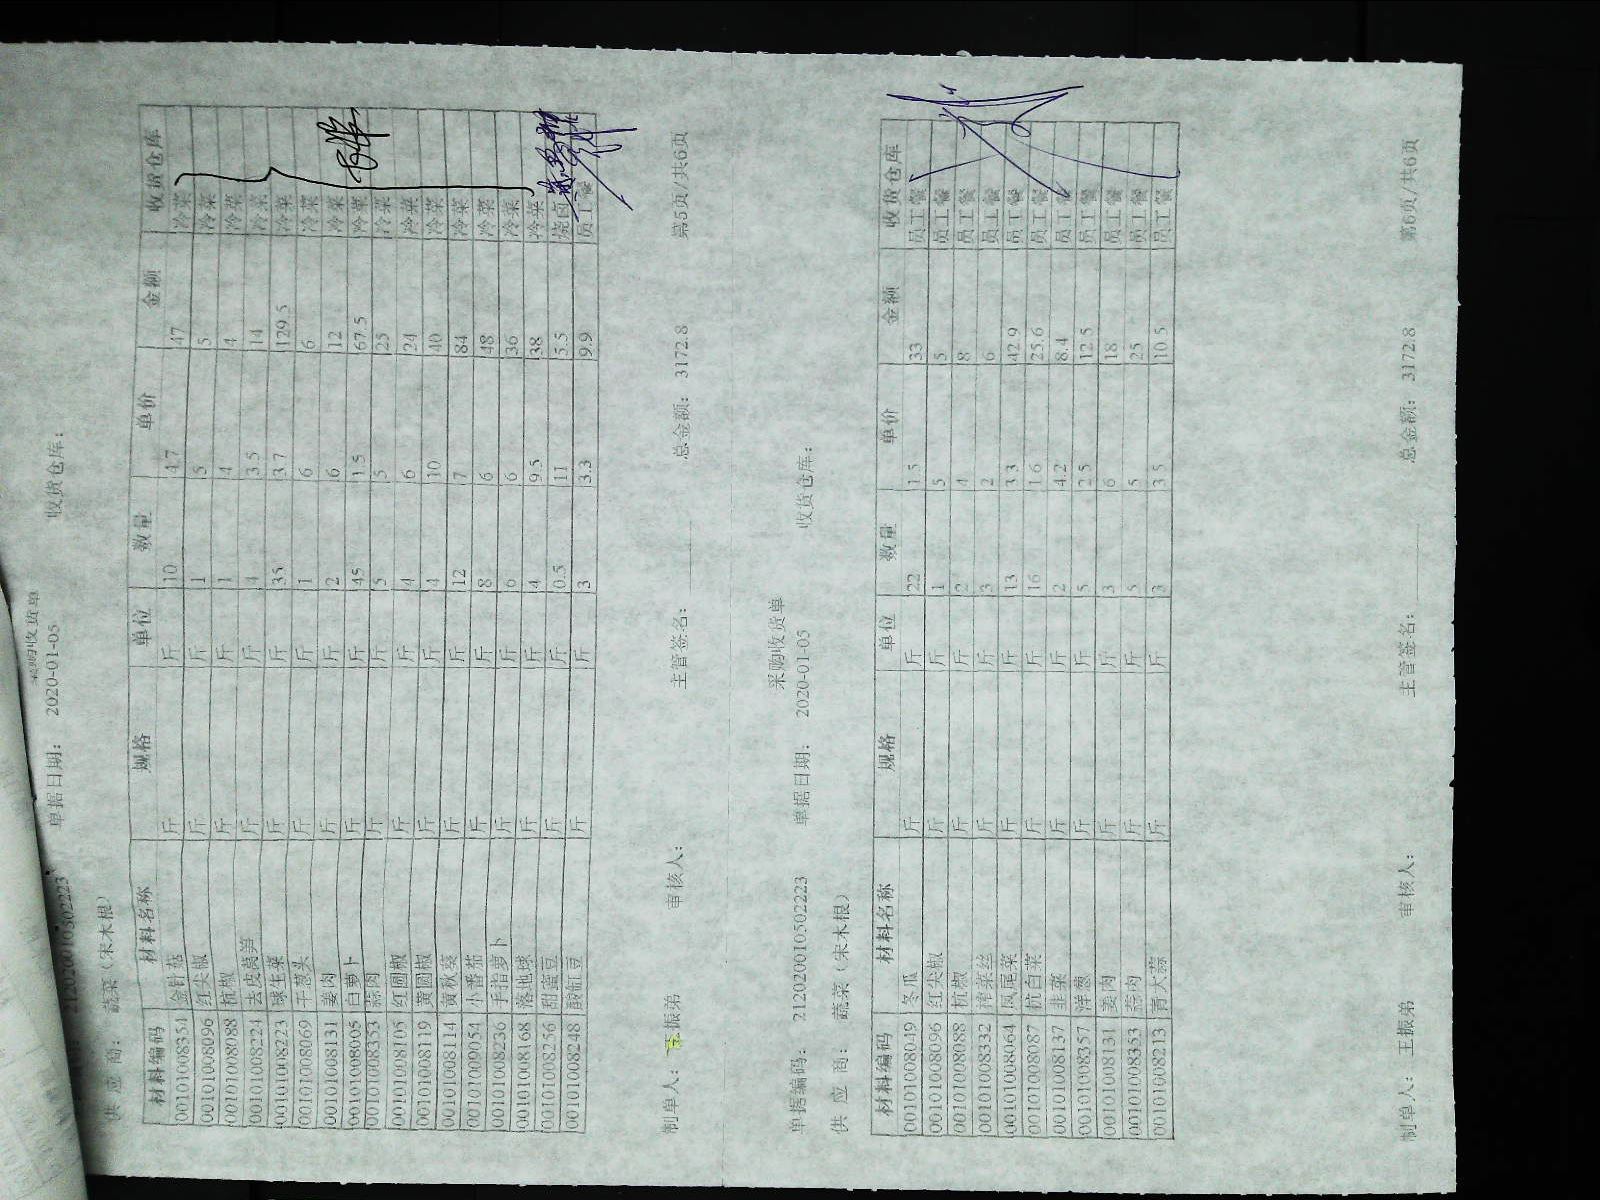 采购收货单
212020010502223 单据日期： 2020-01-05 收货仓库：
供 应 商： 蔬菜（宋木根）
材料编码 材料名称 规格 单位 数量 单价 金额 收货仓库
00101008354 金针菇 斤 斤 10 4.7 47 冷菜
00101008096 红尖椒 斤 斤 1 5 5 冷菜
00101008088 杭椒 斤 斤 1 4 4 冷菜
00101008224 去皮莴笋 斤 斤 4 3.5 14 冷菜
00101008223 球生菜 斤 斤 35 3.7 129.5 冷菜
00101008069 干葱头 斤 斤 1 6 6 冷菜
00101008131 姜肉 斤 斤 2 6 12 冷菜
00101008005 白萝卜 斤 斤 45 1.5 67.5 冷菜
00101008353 蒜肉 斤 斤 5 5 25 冷菜
00101008105 红圆椒 斤 斤 4 6 24 冷菜
00101008119 黄圆椒 斤 斤 4 10 40 冷菜
00101008114 黄秋葵 斤 斤 12 7 84 冷菜
00101009054 小番茄 斤 斤 8 6 48 冷菜
00101008236 手指萝卜 斤 斤 6 6 36 冷菜
00101008168 落地球 斤 斤 4 9.5 38 冷菜
00101008256 甜蜜豆 斤 斤 0.5 11 5.5 烧卤
00101008248 酸缸豆 斤 斤 3 3.3 9.9 员工餐
制单人： 王振弟 审核人： 主管签名： 总金额： 3172.8 第5页/共6页
采购收货单
单据编码： 212020010502223 单据日期： 2020-01-05 收货仓库：
供 应 商： 蔬菜（宋木根）
材料编码 材料名称 规格 单位 数量 单价 金额 收货仓库
00101008049 冬瓜 斤 斤 22 1.5 33 员工餐
00101008096 红尖椒 斤 斤 1 5 5 员工餐
00101008088 杭椒 斤 斤 2 4 8 员工餐
00101008332 榨菜丝 斤 斤 3 2 6 员工餐
00101008064 凤尾菜 斤 斤 13 3.3 42.9 员工餐
00101008087 杭白菜 斤 斤 16 1.6 25.6 员工餐
00101008137 韭菜 斤 斤 2 4.2 8.4 员工餐
00101008357 洋葱 斤 斤 5 2.5 12.5 员工餐
00101008131 姜肉 斤 斤 3 6 18 员工餐
00101008353 蒜肉 斤 斤 5 5 25 员工餐
00101008213 青大蒜 斤 斤 3 3.5 10.5 员工餐
制单人： 王振弟 审核人： 主管签名： 总金额： 3172.8 第6页/共6页